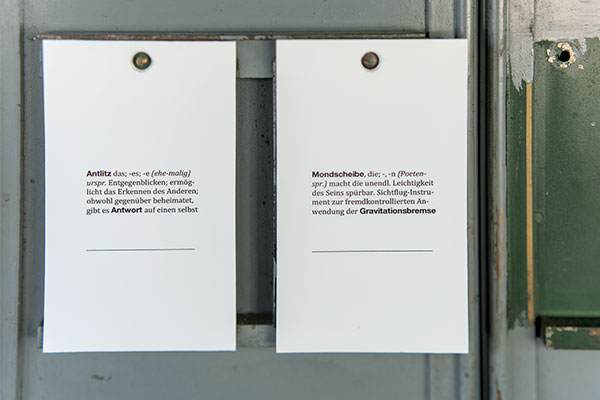 Antlitz das; -es; -e (ehe-malig)
urspr. Entgegenblicken; ermög-
licht das Erkennen des Anderen;
obwohl gegenüber beheimatet,
gibt es Antwort auf einen selbst
Mondscheibe, die; -, -n (Poeten-
spr.) macht die unendl. Leichtigkeit
des Seins spürbar. Sichtflug-Instru-
ment zur fremdkontrollierten An-
wendung der Gravitationsbremse